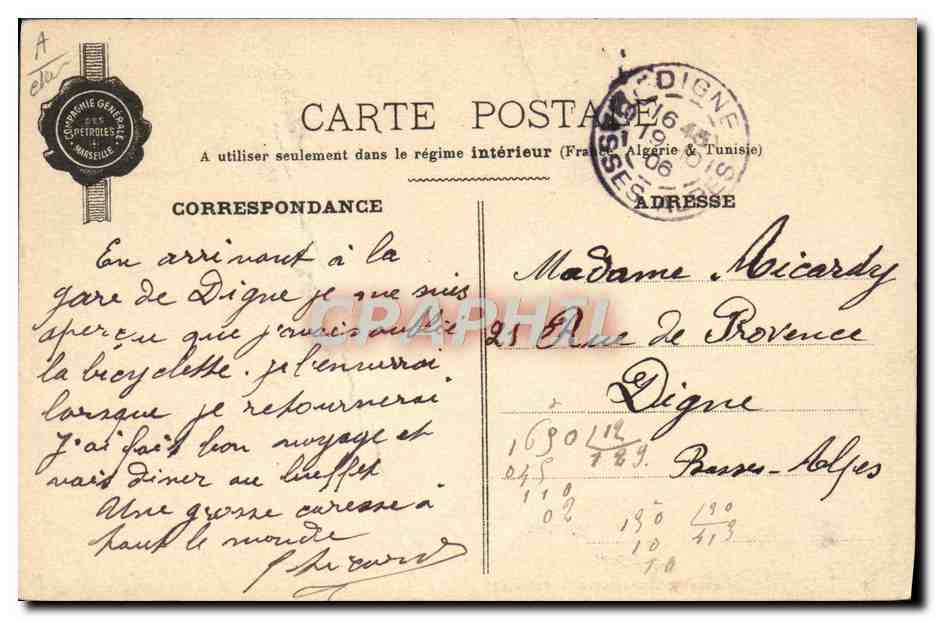 A
COMPAGNIE GÉNÉRALE
DES
PÉTROLES
MARSEILLE
CARTE POSTALE
A utiliser seulement dans le régime intérieur (France, Algérie & Tunisie)
DIGNE
16 45
19 10
06
BSSES ALPES
CORRESPONDANCE
ADRESSE
En arrivant à la
gare de Digne je me suis
aperçu que j'avais oublié
la bicyclette. je l'enverrai
lorsque je retournerai
J'ai fait bon voyage et
vais diner au buffet
Une grosse caresse à
tout le monde
Madame Micardy
21 Rue de Provence
Digne
Basses-Alpes
CPAPHIL
1690 112
049 129.
110
02
190 190
10 413
10